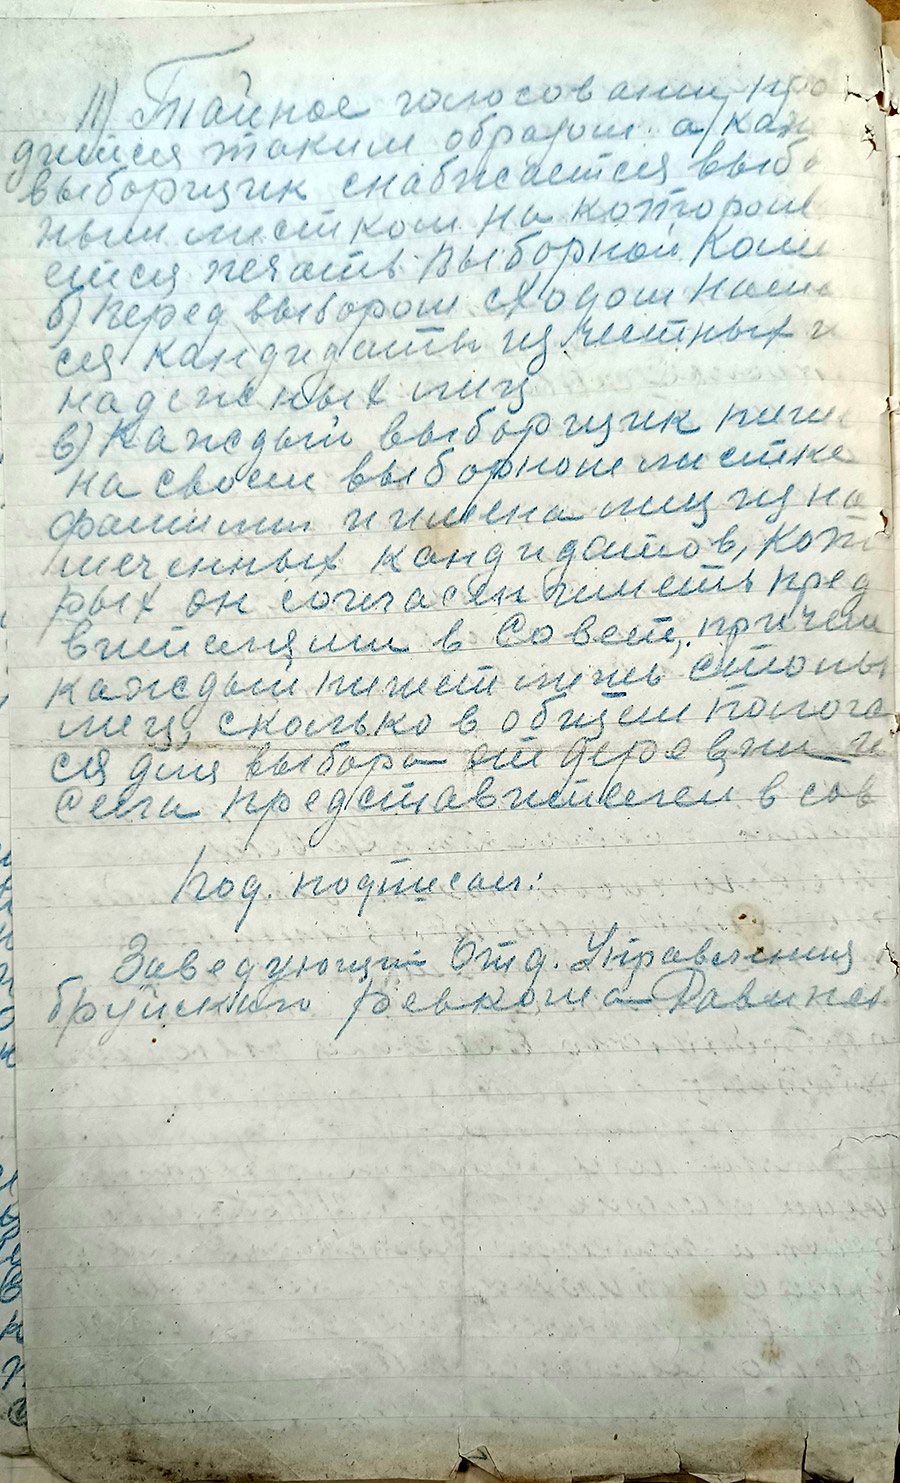 11) Тайное голосование про
дится таким образом: а) каж
выборщик снабжается выбо
ным листком на котором
ется печать Выборной Коми
б) Перед выбором сходом наме
ся кандидаты из честных и
надежных лиц
в) Каждый выборщик пише
на своем выборном листке
фамилии и имена лиц из на
меченных кандидатов, кот
рых он согласен иметь пред
вителями в Совет, причем
каждый пишет лишь столь
лиц, сколько в общем полога
ся для выбора от деревни и
села представителей в сов
Под. подписал:
Заведующий Отд. Управления
бруйского ревкома